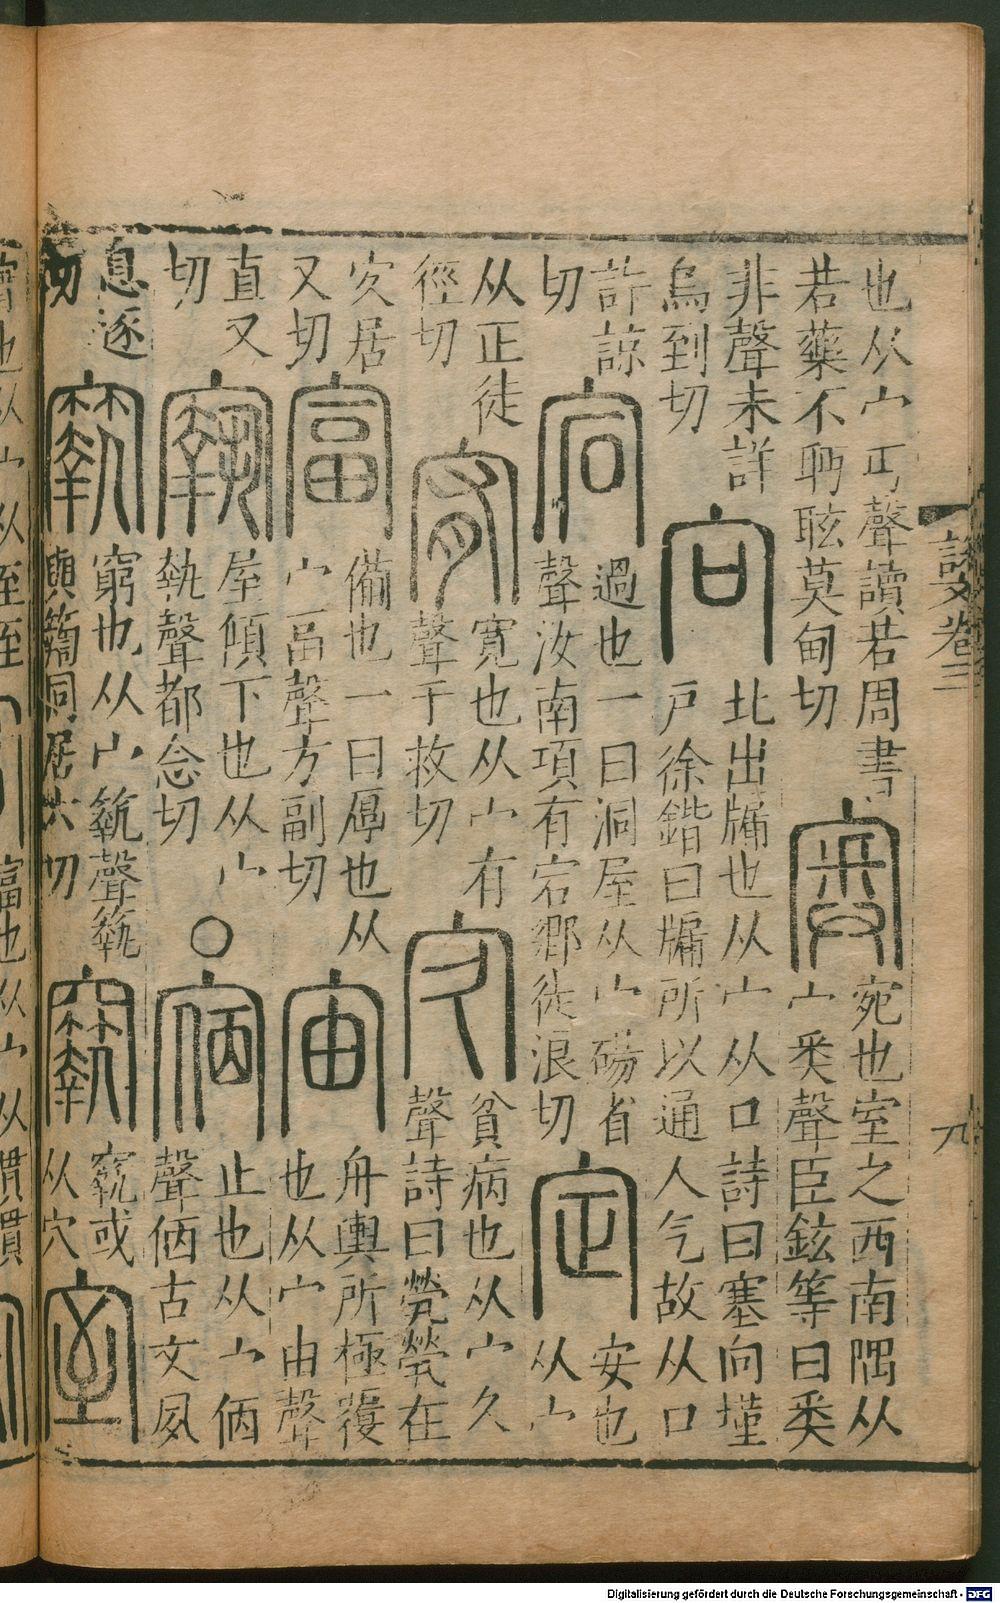 說文卷三
九
也从宀丏聲讀若周書
若藥不眄眩莫甸切
奧
宛也室之西南隅从
宀𢍏聲臣鉉等曰𢍏
非聲未詳
烏到切
向
北出牖也从宀从口詩曰塞向墐
戶徐鍇曰牖所以通人气故从口
許諒
切
宕
過也一曰洞屋从宀碭省
聲汝南項有宕鄉徒浪切
定
安也
从宀
从正徒
徑切
宥
寬也从宀有
聲于救切
㝌
貧病也从宀久
聲詩曰煢煢在
㝌居
又切
富
備也一曰厚也从
宀畐聲方副切
宙
舟輿所極覆
也从宀由聲
直又
切
㝪
屋傾下也从宀
執聲都念切
○
宿
止也从宀㐁
聲㐁古文夙
息逐
切
窮也从宀 聲
與 同居六切
或
从穴
室
Digitalisierung gefördert durch die Deutsche Forschungsgemeinschaft - DFG